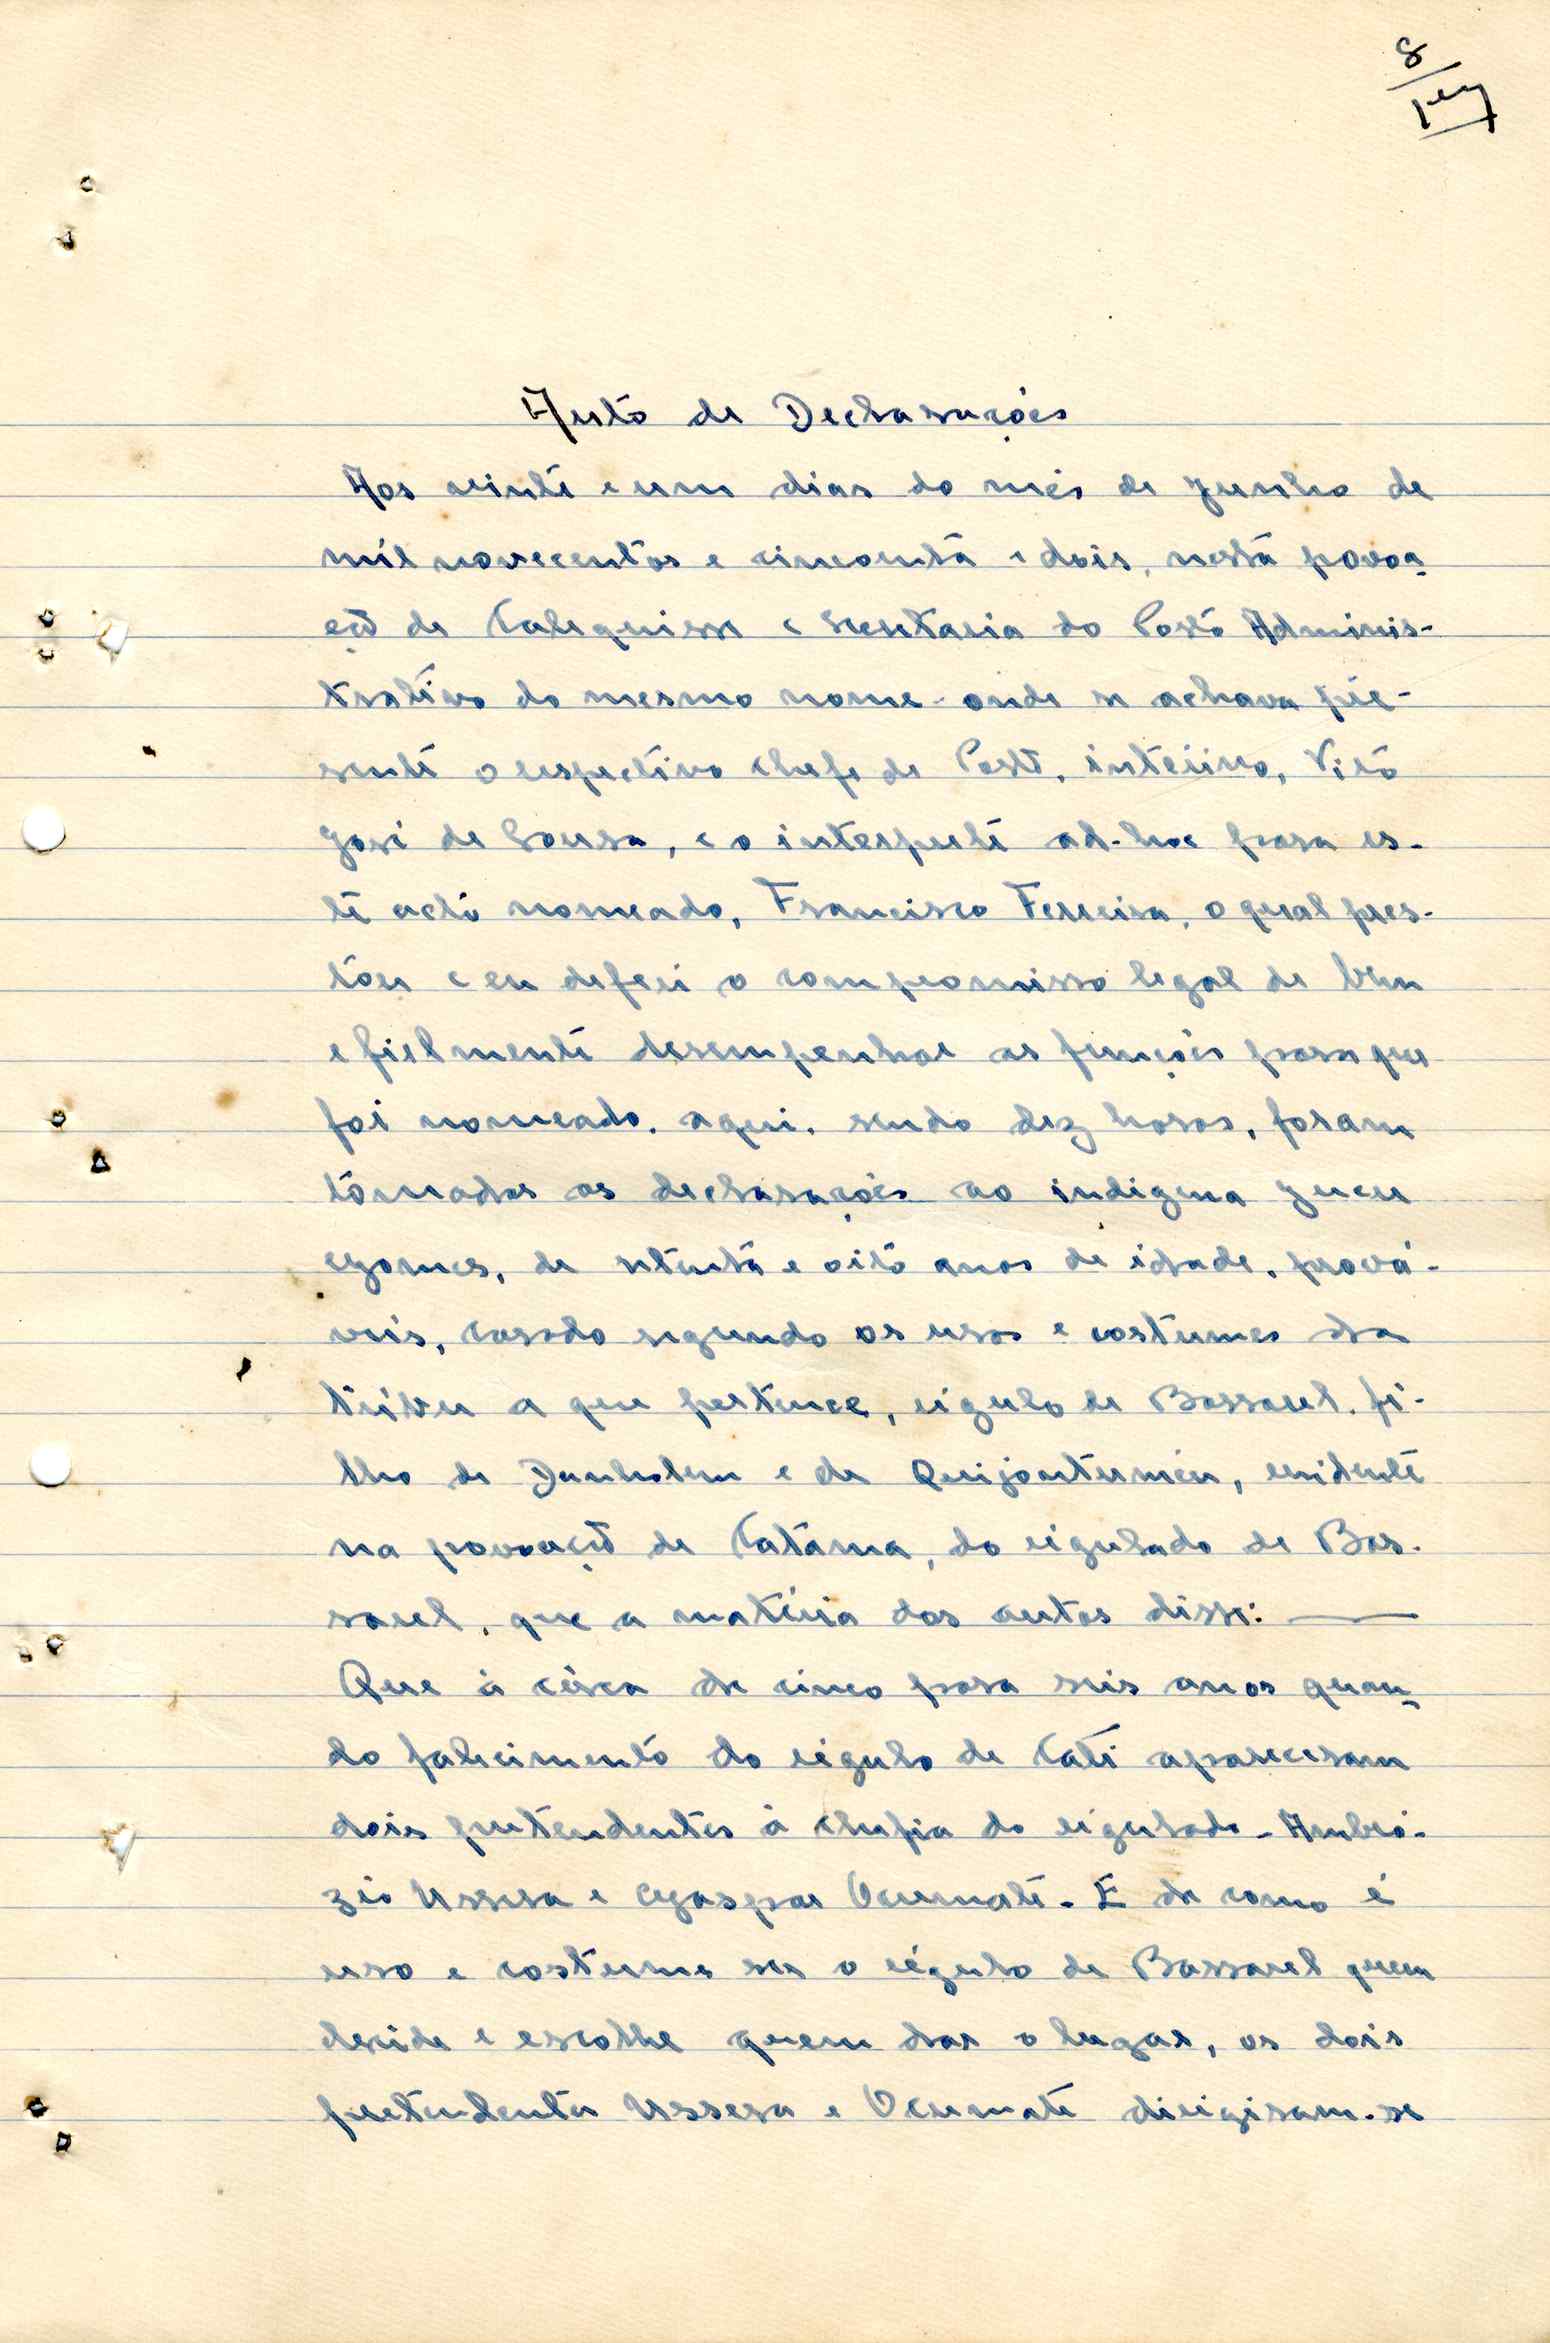 8
Auto de Declarações
Aos vinte e um dias do mês de Junho de
mil novecentos e cincoenta e dois, nesta povoa
ção de Calequisse e secretaria do Posto Adminis-
trativo do mesmo nome - onde se achava pre-
sente o respectivo Chefe de Posto, interino, Vitó
José de Sousa, e o interprete ad-hoc para es-
te acto nomeado, Francisco Ferreira, o qual pres-
tou e eu deferi o compromisso legal de bem
e fielmente desempenhar as funções para que
foi nomeado, aqui, sendo dez horas, foram
tomadas as declarações ao indigena Jucu
Gomes, de setenta e oito anos de idade, prová-
veis, casado segundo os usos e costumes da
tribu a que pertence, régulo de Bassarel, fi-
lho de e de residente
na povoação de Catama, do regulado de Bas-
sarel, que a matéria dos autos disse:
Que à cêrca de cinco para seis anos quan
do falecimento do régulo de Cati apareceram
dois pretendentes à chefia do regulado - Ambró-
zio Ussera e Gaspar Ocumate. E da como é
uso e costume ser o régulo de Bassarel quem
decide e escolhe quem dar o lugar, os dois
pretendentes Ussera e Ocumate dirigiram-se